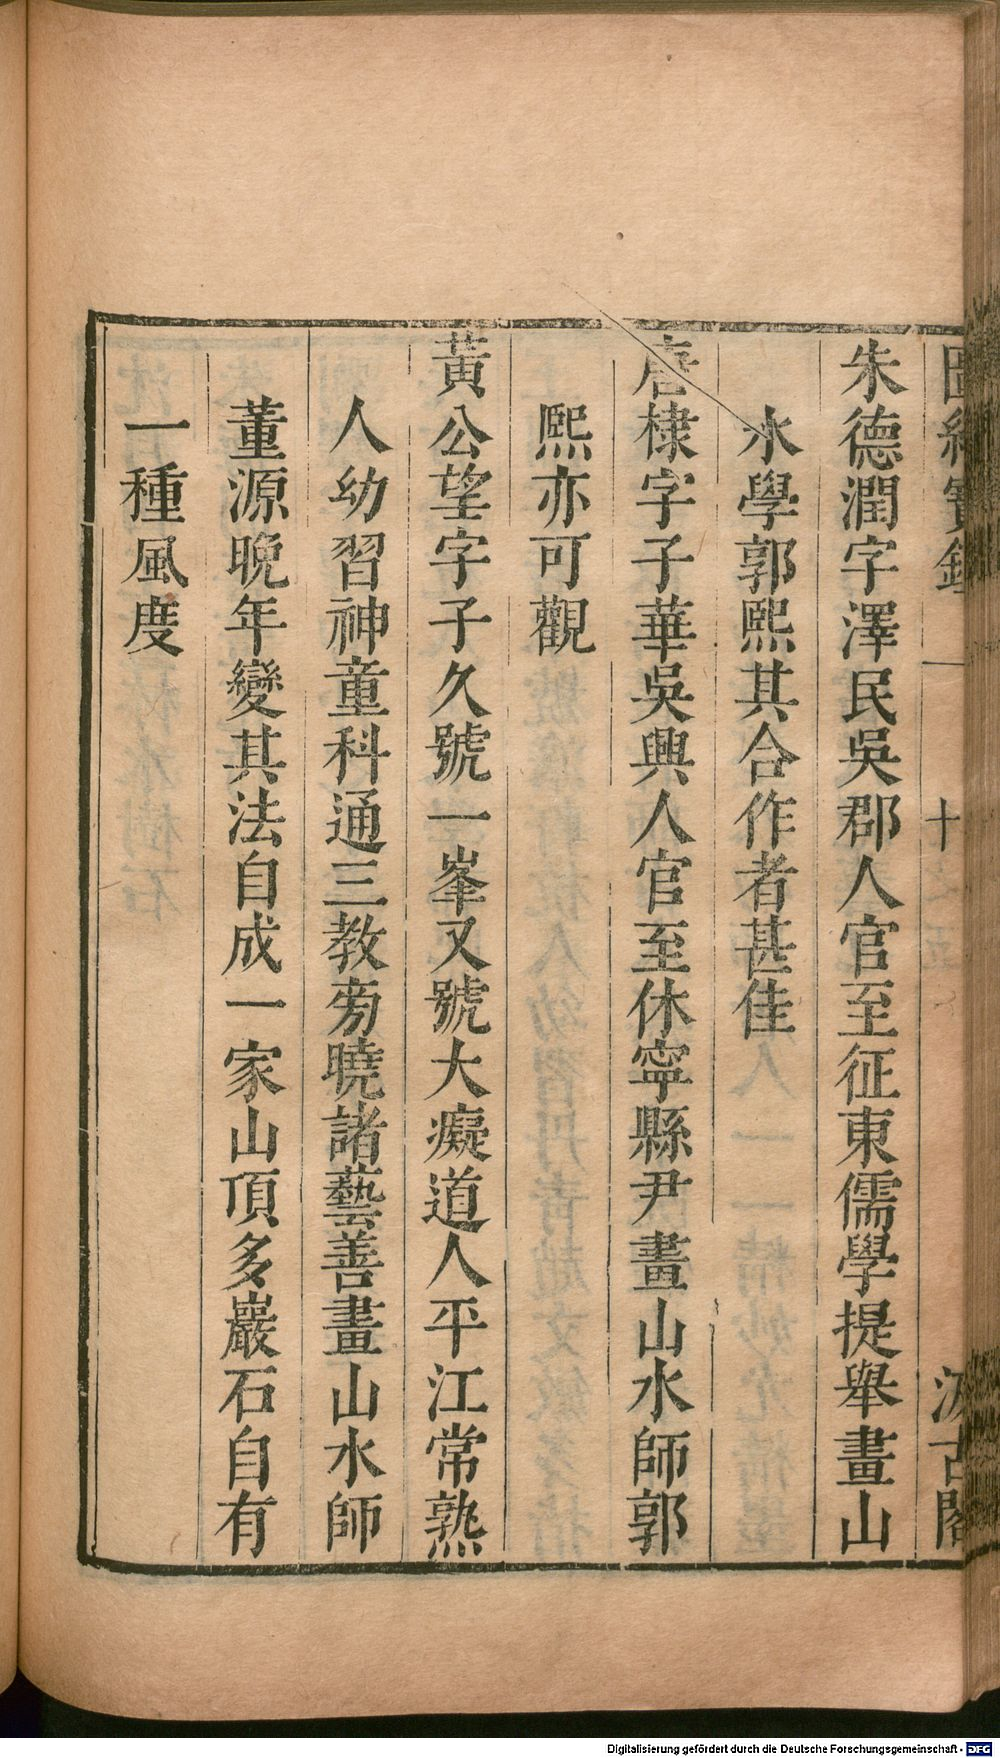 圖繪寶鑑
十
汲古閣
朱德潤字澤民吳郡人官至征東儒學提舉畫山
水學郭熙其合作者甚佳
唐棣字子華吳興人官至休寧縣尹畫山水師郭
熙亦可觀
黃公望字子久號一峯又號大癡道人平江常熟
人幼習神童科通三教旁曉諸藝善畫山水師
董源晚年變其法自成一家山頂多巖石自有
一種風度
Digitalisierung gefördert durch die Deutsche Forschungsgemeinschaft - DFG